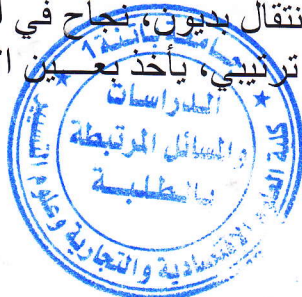 نتقال بديون، نجاح في ا
ترتيبي، يأخذ بعين ا
جامعة باتنة 1
الدراسات
والمسائل المرتبطة
بالطلبة
كلية العلوم الاقتصادية والتجارية وعلوم التسيير